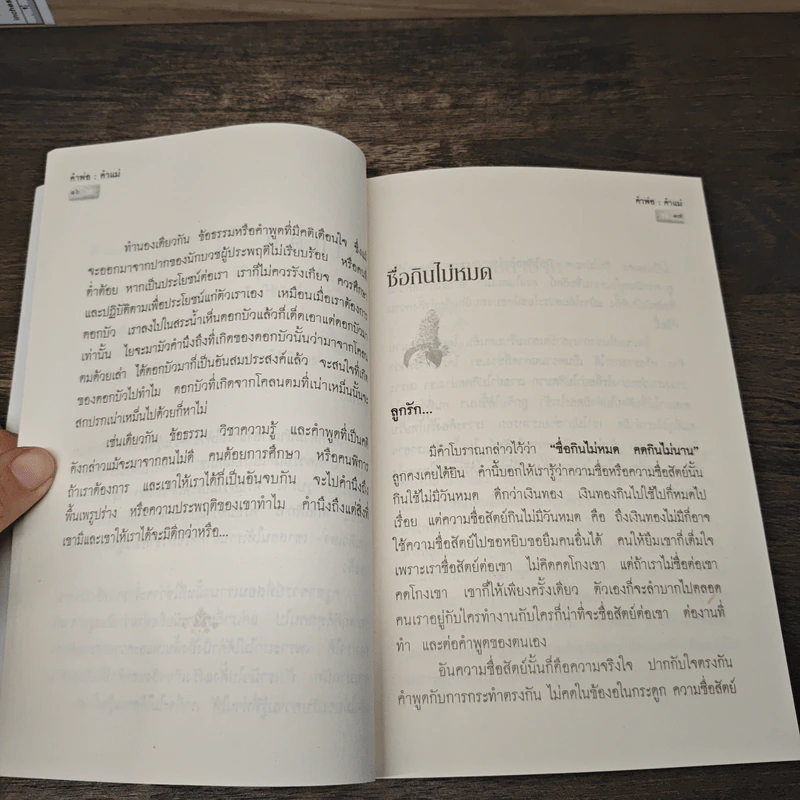 คำพ่อ : คำแม่
๑๖
ทำนองเดียวกัน ข้อธรรมหรือคำพูดที่มีคติเตือนใจ ซึ่งแม้
จะออกมาจากปากของนักบวชผู้ประพฤติไม่เรียบร้อย หรือคนที่
ต่ำต้อย หากเป็นประโยชน์ต่อเรา เราก็ไม่ควรรังเกียจ ควรศึกษา
และปฏิบัติตามเพื่อประโยชน์แก่ตัวเราเอง เหมือนเมื่อเราต้องการ
ดอกบัว เราลงไปในสระน้ำเห็นดอกบัวแล้วก็เด็ดเอาแต่ดอกบัวมา
เท่านั้น ใยจะมามัวคำนึงถึงที่เกิดของดอกบัวนั้นว่ามาจากโคลน
ตมด้วยเล่า ได้ดอกบัวมาก็เป็นอันสมประสงค์แล้ว จะสนใจที่เกิด
ของดอกบัวไปทำไม ดอกบัวที่เกิดจากโคลนตมที่เน่าเหม็นนั้นจะ
สกปรกเน่าเหม็นไปด้วยก็หาไม่
เช่นเดียวกัน ข้อธรรม วิชาความรู้ และคำพูดที่เป็นคติ
ดังกล่าวแม้จะมาจากคนไม่ดี คนด้อยการศึกษา หรือคนพิการ
ถ้าเราต้องการ และเขาให้เราได้ก็เป็นอันจบกัน จะไปคำนึงถึง
พื้นเพรูปร่าง หรือความประพฤติของเขาทำไม คำนึงถึงแต่สิ่งที่
เขามีและเขาให้เราได้จะมิดีกว่าหรือ...
คำพ่อ : คำแม่
๑๗
ซื่อกินไม่หมด
ลูกรัก...
มีคำโบราณกล่าวไว้ว่า “ซื่อกินไม่หมด คดกินไม่นาน”
ลูกคงเคยได้ยิน คำนี้บอกให้เรารู้ว่าความซื่อหรือความซื่อสัตย์นั้น
กินใช้ไม่มีวันหมด ดีกว่าเงินทอง เงินทองกินไปใช้ไปก็หมดไป
เรื่อย แต่ความซื่อสัตย์กินไม่มีวันหมด คือ ถึงเงินทองไม่มีก็อาจ
ใช้ความซื่อสัตย์ไปขอหยิบขอยืมคนอื่นได้ คนให้ยืมเขาก็เต็มใจ
เพราะเราซื่อสัตย์ต่อเขา ไม่คิดคดโกงเขา แต่ถ้าเราไม่ซื่อต่อเขา
คดโกงเขา เขาก็ให้เพียงครั้งเดียว ตัวเองก็จะลำบากไปตลอด
คนเราอยู่กับใครทำงานกับใครก็น่าที่จะซื่อสัตย์ต่อเขา ต่องานที่
ทำ และต่อคำพูดของตนเอง
อันความซื่อสัตย์นั้นก็คือความจริงใจ ปากกับใจตรงกัน
คำพูดกับการกระทำตรงกัน ไม่คดในข้องอในกระดูก ความซื่อสัตย์